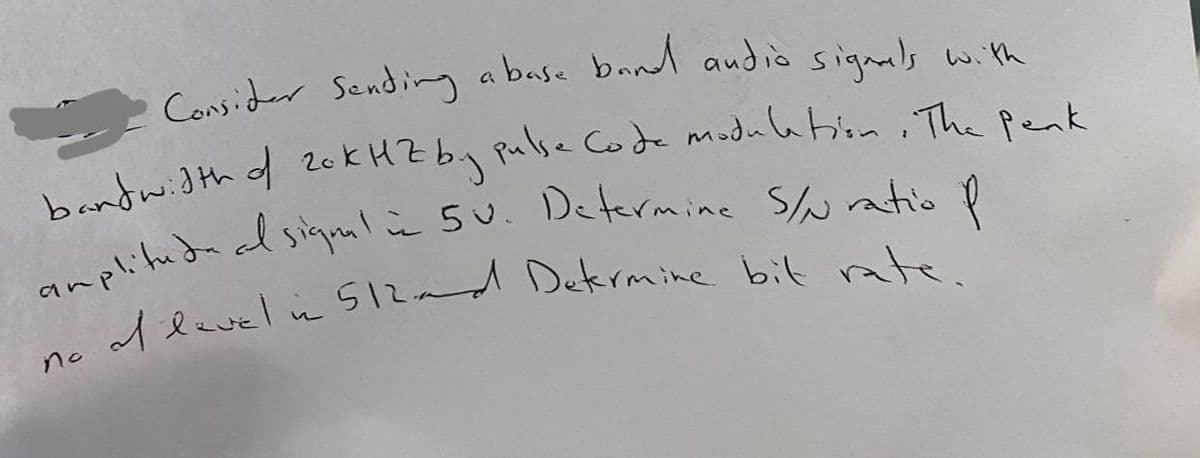 Consider Sending a base band audio signals with
bandwidth of 20KHZ by pulse Code modulation. The peak
amplitude of signal is 5V. Determine S/N ratio if
no of level is 512 and Determine bit rate.